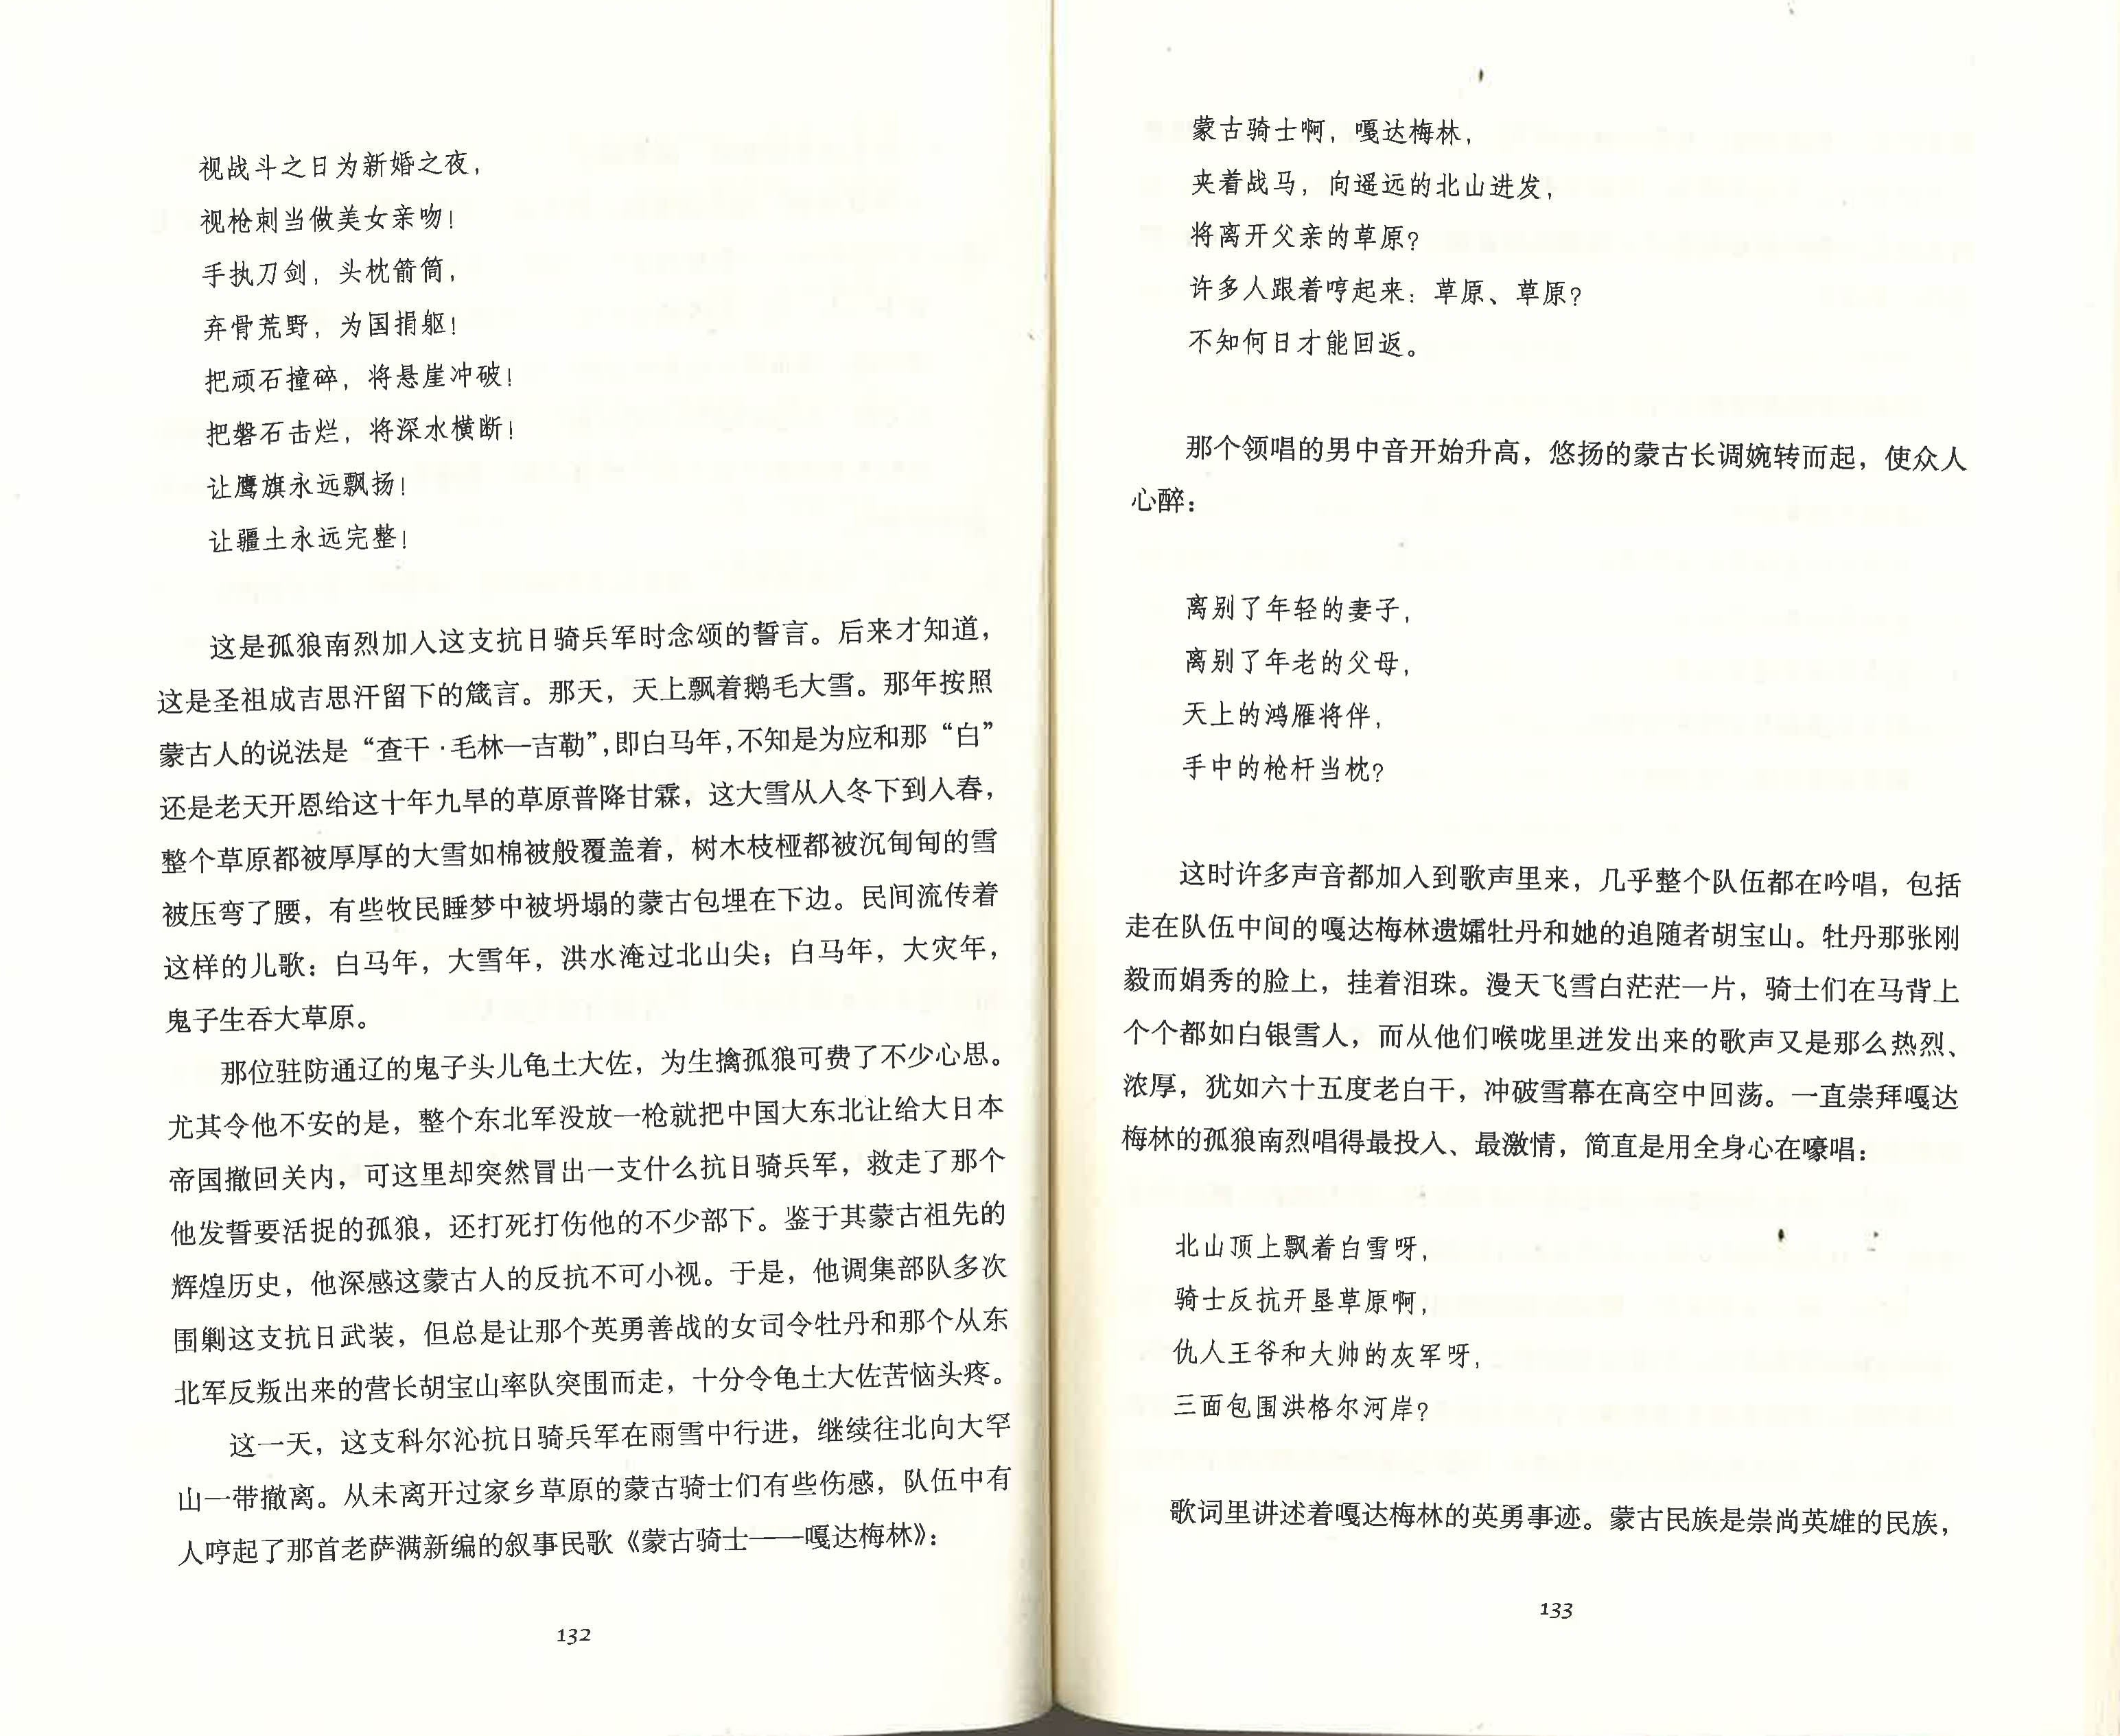 视战斗之日为新婚之夜，
视枪刺当做美女亲吻！
手执刀剑，头枕箭筒，
弃骨荒野，为国捐躯！
把顽石撞碎，将悬崖冲破！
把磐石击烂，将深水横断！
让鹰旗永远飘扬！
让疆土永远完整！
这是孤狼南烈加入这支抗日骑兵军时念颂的誓言。后来才知道，
这是圣祖成吉思汗留下的箴言。那天，天上飘着鹅毛大雪。那年按照
蒙古人的说法是“查干·毛林—吉勒”，即白马年，不知是为应和那“白”
还是老天开恩给这十年九旱的草原普降甘霖，这大雪从入冬下到入春，
整个草原都被厚厚的大雪如棉被般覆盖着，树木枝桠都被沉甸甸的雪
被压弯了腰，有些牧民睡梦中被坍塌的蒙古包埋在下边。民间流传着
这样的儿歌：白马年，大雪年，洪水淹过北山尖；白马年，大灾年，
鬼子生吞大草原。
那位驻防通辽的鬼子头儿龟土大佐，为生擒孤狼可费了不少心思。
尤其令他不安的是，整个东北军没放一枪就把中国大东北让给大日本
帝国撤回关内，可这里却突然冒出一支什么抗日骑兵军，救走了那个
他发誓要活捉的孤狼，还打死打伤他的不少部下。鉴于其蒙古祖先的
辉煌历史，他深感这蒙古人的反抗不可小视。于是，他调集部队多次
围剿这支抗日武装，但总是让那个英勇善战的女司令牡丹和那个从东
北军反叛出来的营长胡宝山率队突围而走，十分令龟土大佐苦恼头疼。
这一天，这支科尔沁抗日骑兵军在雨雪中行进，继续往北向大罕
山一带撤离。从未离开过家乡草原的蒙古骑士们有些伤感，队伍中有
人哼起了那首老萨满新编的叙事民歌《蒙古骑士——嘎达梅林》：
132
蒙古骑士啊，嘎达梅林，
夹着战马，向遥远的北山进发，
将离开父亲的草原？
许多人跟着哼起来：草原、草原？
不知何日才能回返。
那个领唱的男中音开始升高，悠扬的蒙古长调婉转而起，使众人
心醉：
离别了年轻的妻子，
离别了年老的父母，
天上的鸿雁将伴，
手中的枪杆当枕？
这时许多声音都加入到歌声里来，几乎整个队伍都在吟唱，包括
走在队伍中间的嘎达梅林遗孀牡丹和她的追随者胡宝山。牡丹那张刚
毅而娟秀的脸上，挂着泪珠。漫天飞雪白茫茫一片，骑士们在马背上
个个都如白银雪人，而从他们喉咙里迸发出来的歌声又是那么热烈、
浓厚，犹如六十五度老白干，冲破雪幕在高空中回荡。一直崇拜嘎达
梅林的孤狼南烈唱得最投入、最激情，简直是用全身心在嚎唱：
北山顶上飘着白雪呀，
骑士反抗开垦草原啊，
仇人王爷和大帅的灰军呀，
三面包围洪格尔河岸？
歌词里讲述着嘎达梅林的英勇事迹。蒙古民族是崇尚英雄的民族，
133